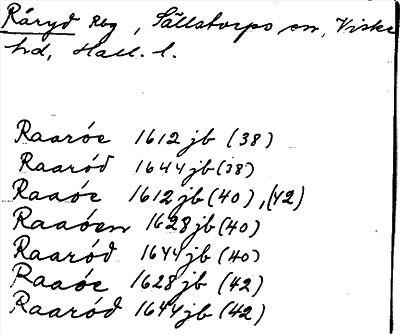 Råryd Rbg, Sällstorps sn, Viske
hd, Hall. l.
Raaröe 1612 jb (38)
Raaröd 1644 jb (38)
Raaöe 1612 jb (40), (42)
Raaöen 1628 jb (40)
Raaröd 1644 jb (40)
Raaöe 1628 jb (42)
Raaröd 1644 jb (42)